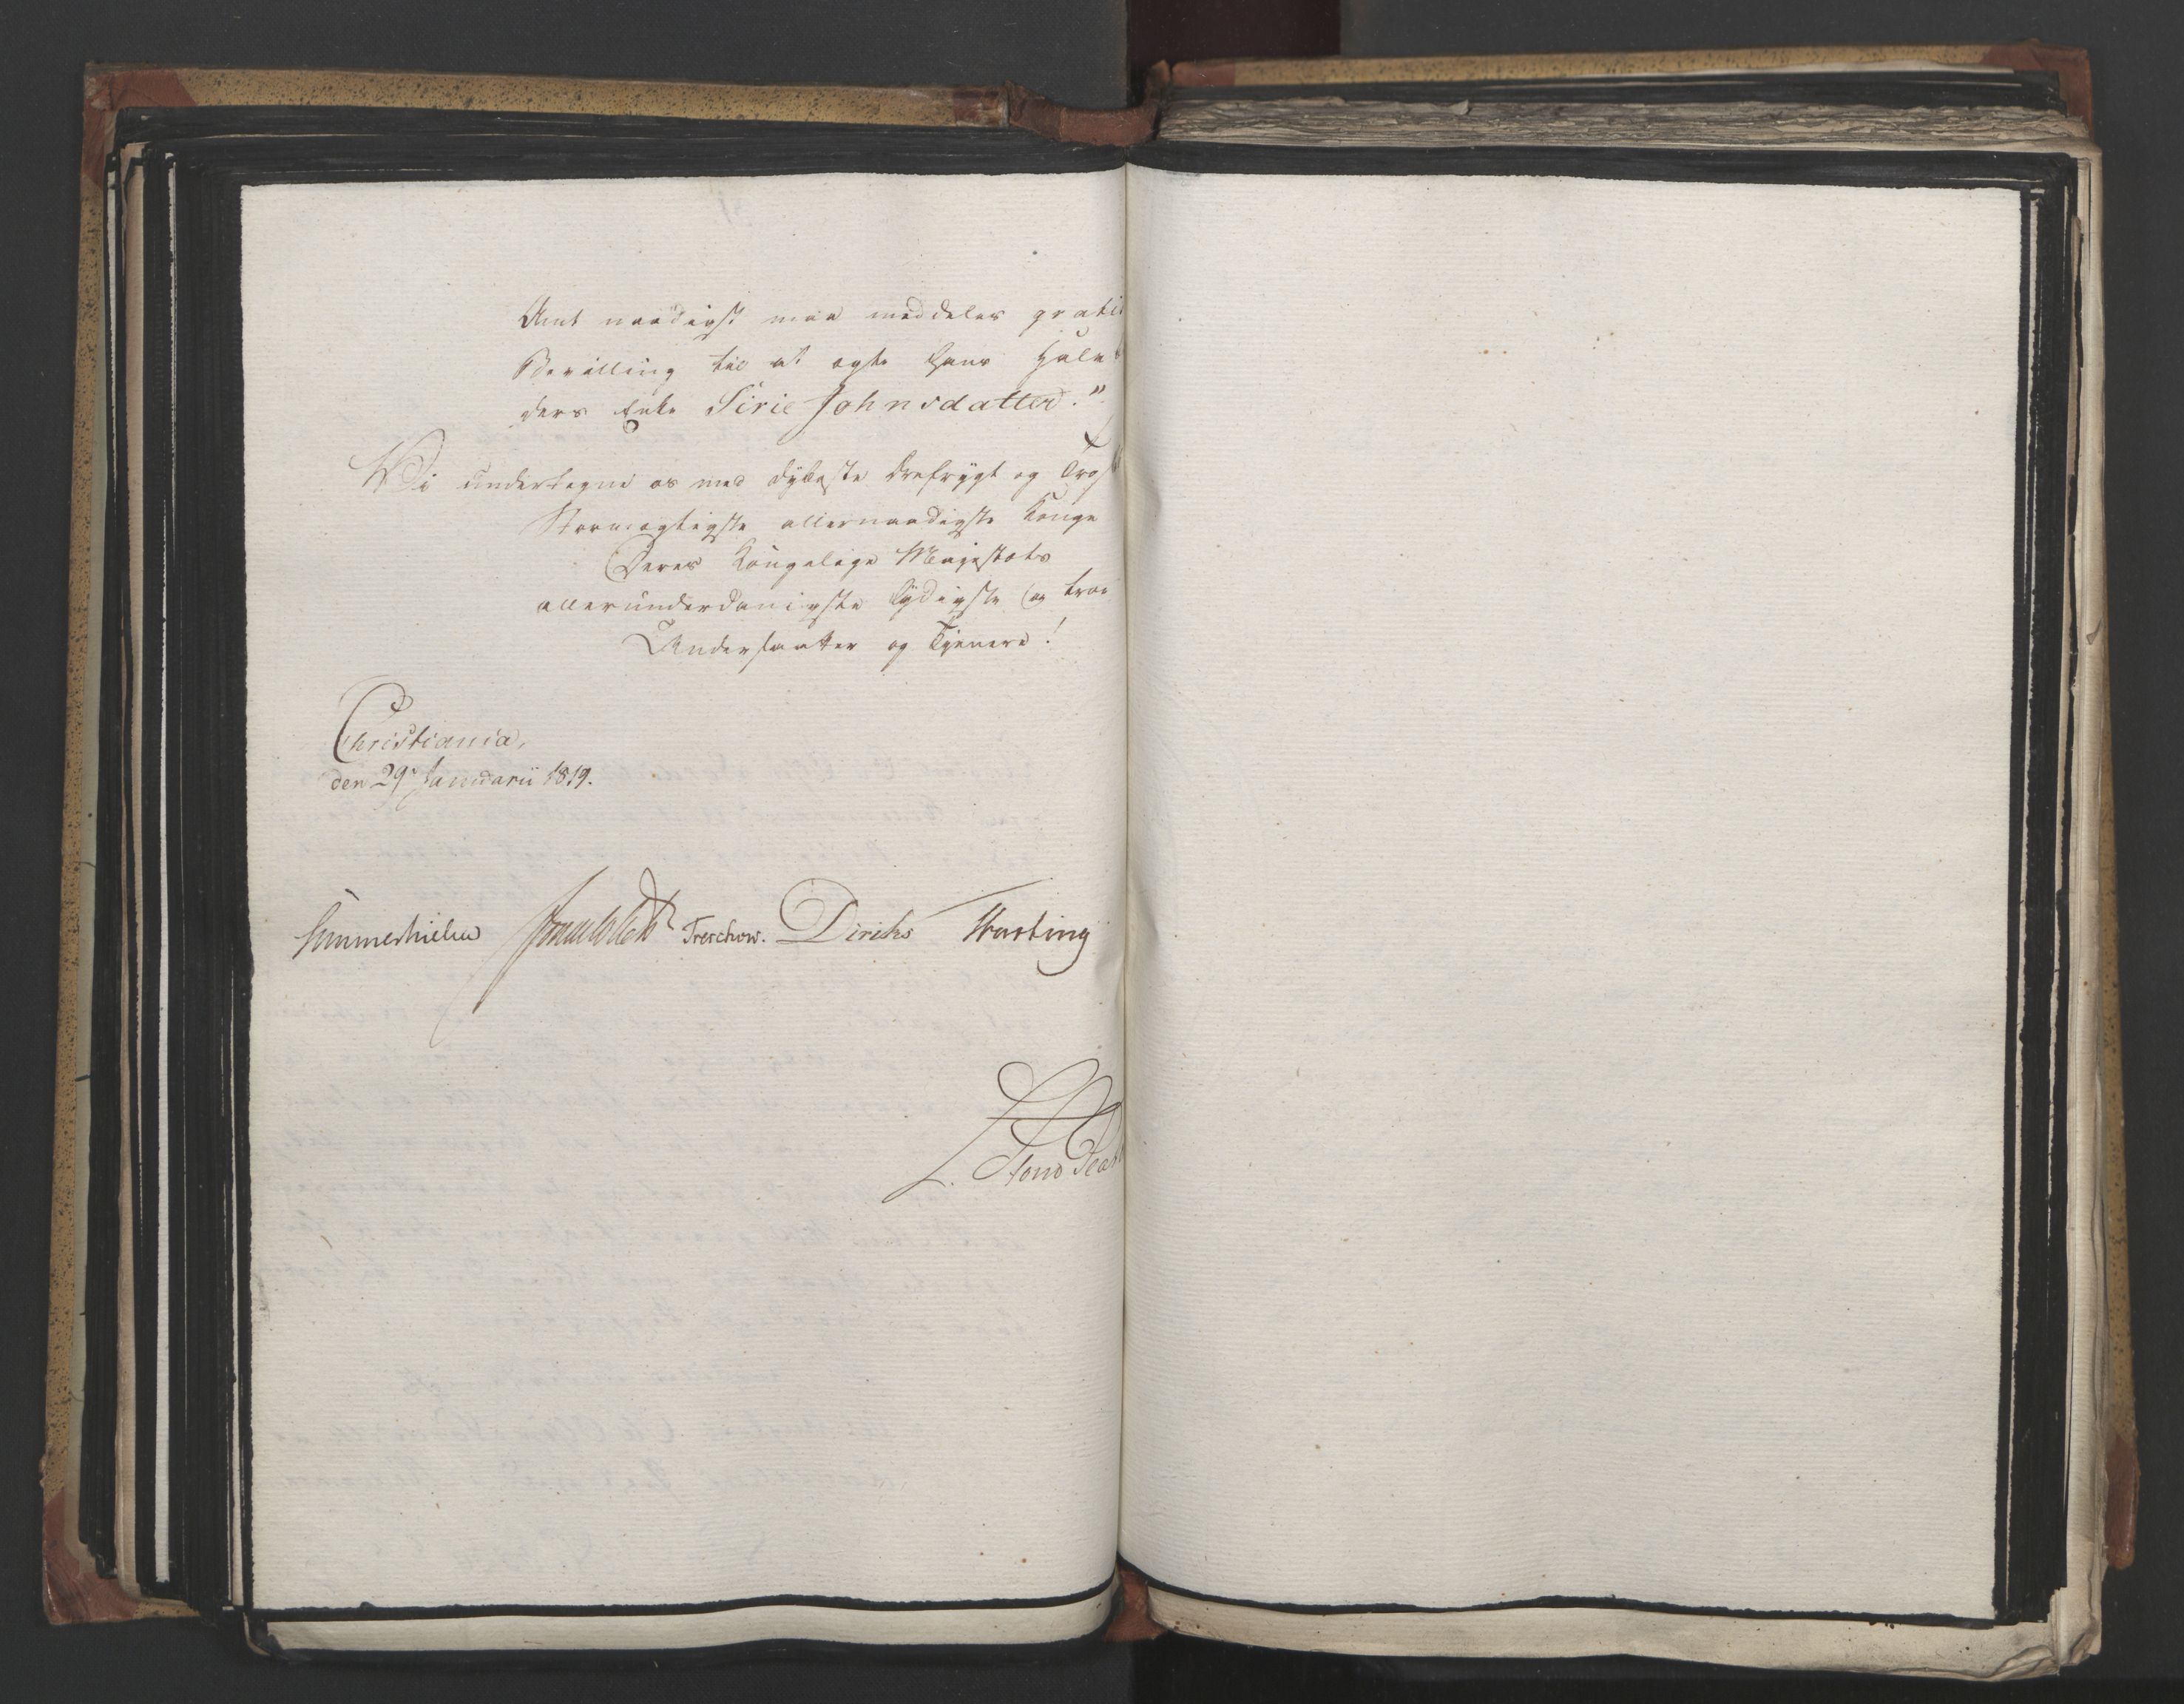 Amt naadigst maa meddeles gratis
Bevilling til at ægte hans Halv
ders Enke Sirie Johnsdatter."
Vi undertegne os med dybeste Ærefrygt og Tro
Stormægtigste allernaadigste Konge
Deres Kongelige Majestæts
allerunderdanigste lydigste og troe
Undersaatter og Tjenere!
Christiania,
den 29de Januarii 1819.
Sommerhielm Treschow. Diriks Hasting